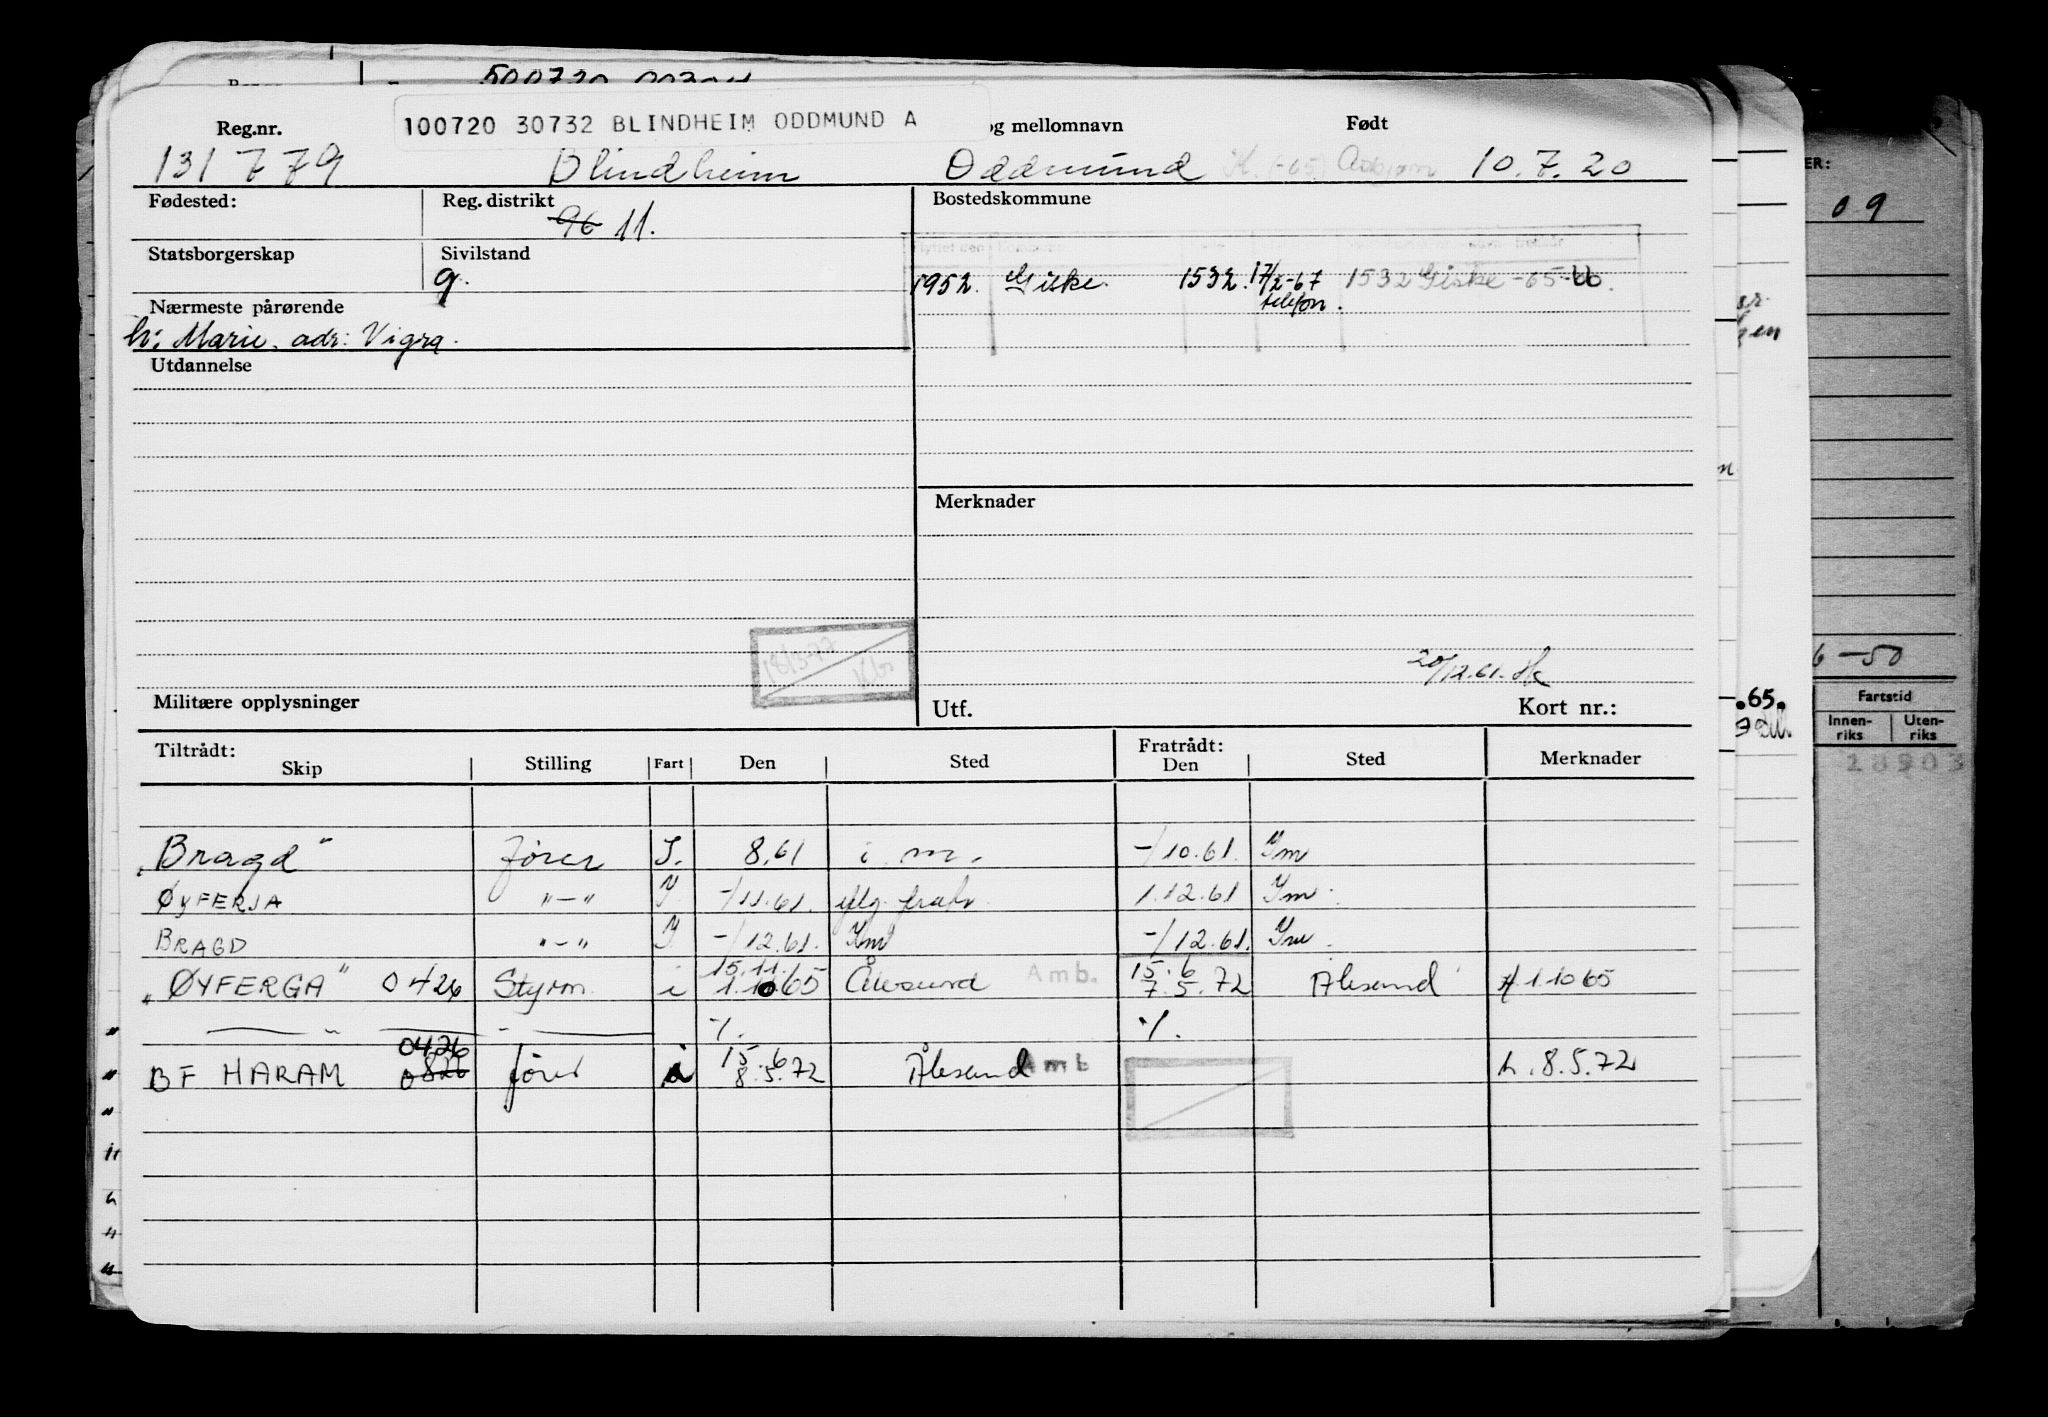 100720 30732 BLINDHEIM ODDMUND A
Reg.nr. og mellomnavn Født
131779 Blindheim Oddmund K. (-65) Asbjørn 10.7.20
Fødested: Reg. distrikt Bostedskommune
96 11.
Statsborgerskap Sivilstand
g. 1952. Giske. 1532. 17/2-67 1532 Giske -65-
telefon.
Nærmeste pårørende
h: Marie. adr: Vigra.
Utdannelse
Merknader
18/3-77
20/12.61.
Militære opplysninger Utf. Kort nr.:
Tiltrådt: Fratrådt:
Skip Stilling Fart Den Sted Den Sted Merknader
"Bragd" fører I. 8.61 i. m. -/10.61. Im
ØYFERJA "-" I -/11.61. 1.12.61 Im.
BRAGD "-" I -/12.61. Im -/12.61. Im.
15.11. 15.6
"ØYFERGA" 0426 Styrm. i 1.10 65 Ålesund Amb. 7.5.72 Ålesund 1.10 65
— " — - — ./. ./.
0426 15.6
BF HARAM 0826 fører i 8.5.72 Ålesund Amb h. 8.5.72
ER:
09
6-50
.65.
Fartstid
Innen-
riks
Uten-
riks